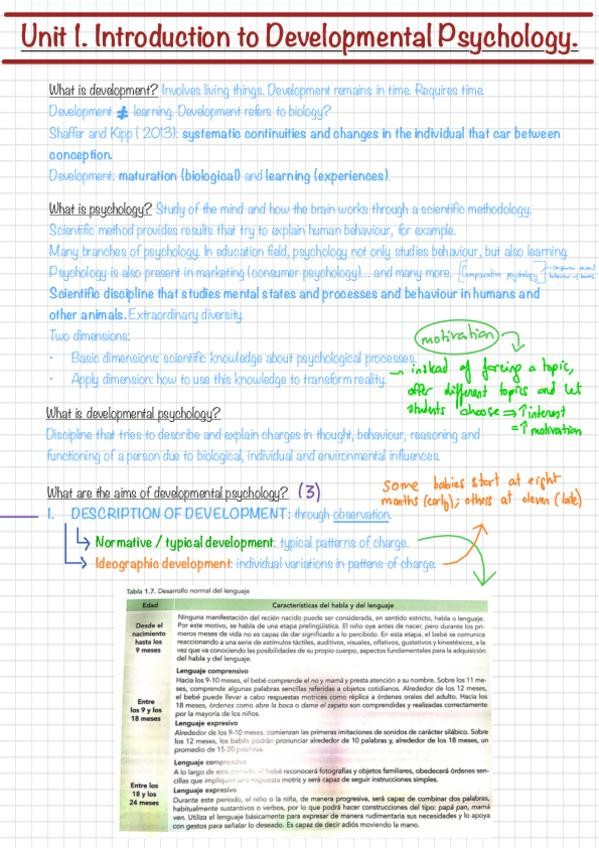 Unit 1. Introduction to Developmental Psychology.
What is development? Involves living things. Development remains in time. Requires time.
Development ≠ learning. Development refers to biology?
Shaffer and Kipp ( 2013): systematic continuities and changes in the individual that car between
conception.
Development: maturation (biological) and learning (experiences).
What is psychology? Study of the mind and how the brain works through a scientific methodology.
Scientific method provides results that try to explain human behaviour, for example.
Many branches of psychology. In education field, psychology not only studies behaviour, but also learning.
Psychology is also present in marketing (consumer psychology)... and many more. [Comparative psychology]
Scientific discipline that studies mental states and processes and behaviour in humans and
other animals. Extraordinary diversity.
Two dimensions:
• Basic dimensions: scientific knowledge about psychological processes.
• Apply dimension: how to use this knowledge to transform reality.
motivation
instead of forcing a topic,
offer different topics and let
students choose ⇒ ↑ interest
= ↑ motivation
What is developmental psychology?
Discipline that tries to describe and explain charges in thought, behaviour, reasoning and
functioning of a person due to biological, individual and environmental influences.
What are the aims of developmental psychology? (3)
Some babies start at eight
months (early); others at eleven (late)
1. DESCRIPTION OF DEVELOPMENT: through observation.
Normative / typical development: typical patterns of charge.
Ideographic development: individual variations in pattens of charge.
Tabla 1.7. Desarrollo normal del lenguaje
Edad Características del habla y del lenguaje
Desde el
nacimiento
hasta los
9 meses
Ninguna manifestación del recién nacido puede ser considerada, en sentido estricto, habla o lenguaje.
Por este motivo, se habla de una etapa prelingüística. El niño oye antes de nacer, pero durante los pri-
meros meses de vida no es capaz de dar significado a lo percibido. En esta etapa, el bebé se comunica
reaccionando a una serie de estímulos táctiles, auditivos, visuales, olfativos, gustativos y kinestésicos, a la
vez que va conociendo las posibilidades de su propio cuerpo, aspectos fundamentales para la adquisición
del habla y del lenguaje.
Entre
los 9 y los
18 meses
Lenguaje comprensivo
Hacia los 9-10 meses, el bebé comprende el no y mamá y presta atención a su nombre. Sobre los 11 me-
ses, comprende algunas palabras sencillas referidas a objetos cotidianos. Alrededor de los 12 meses,
el bebé puede llevar a cabo respuestas motrices como réplica a órdenes orales del adulto. Hacia los
18 meses, órdenes como abre la boca o dame el zapato son comprendidas y realizadas correctamente
por la mayoría de los niños.
Lenguaje expresivo
Alrededor de los 9-10 meses, comienzan las primeras imitaciones de sonidos de carácter silábico. Sobre
los 12 meses, los bebés podrán pronunciar alrededor de 10 palabras y, alrededor de los 18 meses, un
promedio de 15-20 palabras.
Entre los
18 y los
24 meses
Lenguaje comprensivo
A lo largo de este periodo, el bebé reconocerá fotografías y objetos familiares, obedecerá órdenes sen-
cillas que impliquen una respuesta motriz y será capaz de seguir instrucciones simples.
Lenguaje expresivo
Durante este periodo, el niño o la niña, de manera progresiva, será capaz de combinar dos palabras,
habitualmente sustantivos o verbos, por lo que podrá hacer construcciones del tipo: papá pan, mamá
ven. Utiliza el lenguaje básicamente para expresar de manera rudimentaria sus necesidades y lo apoya
con gestos para señalar lo deseado. Es capaz de decir adiós moviendo la mano.